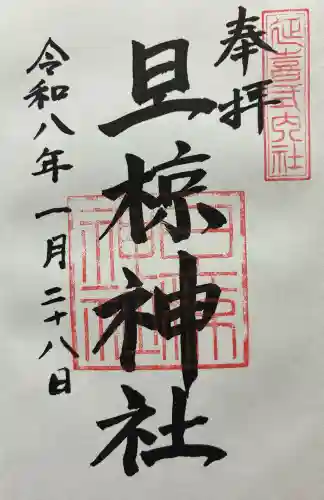 延喜式内社
奉拝
旦椋神社
令和八年一月二十八日